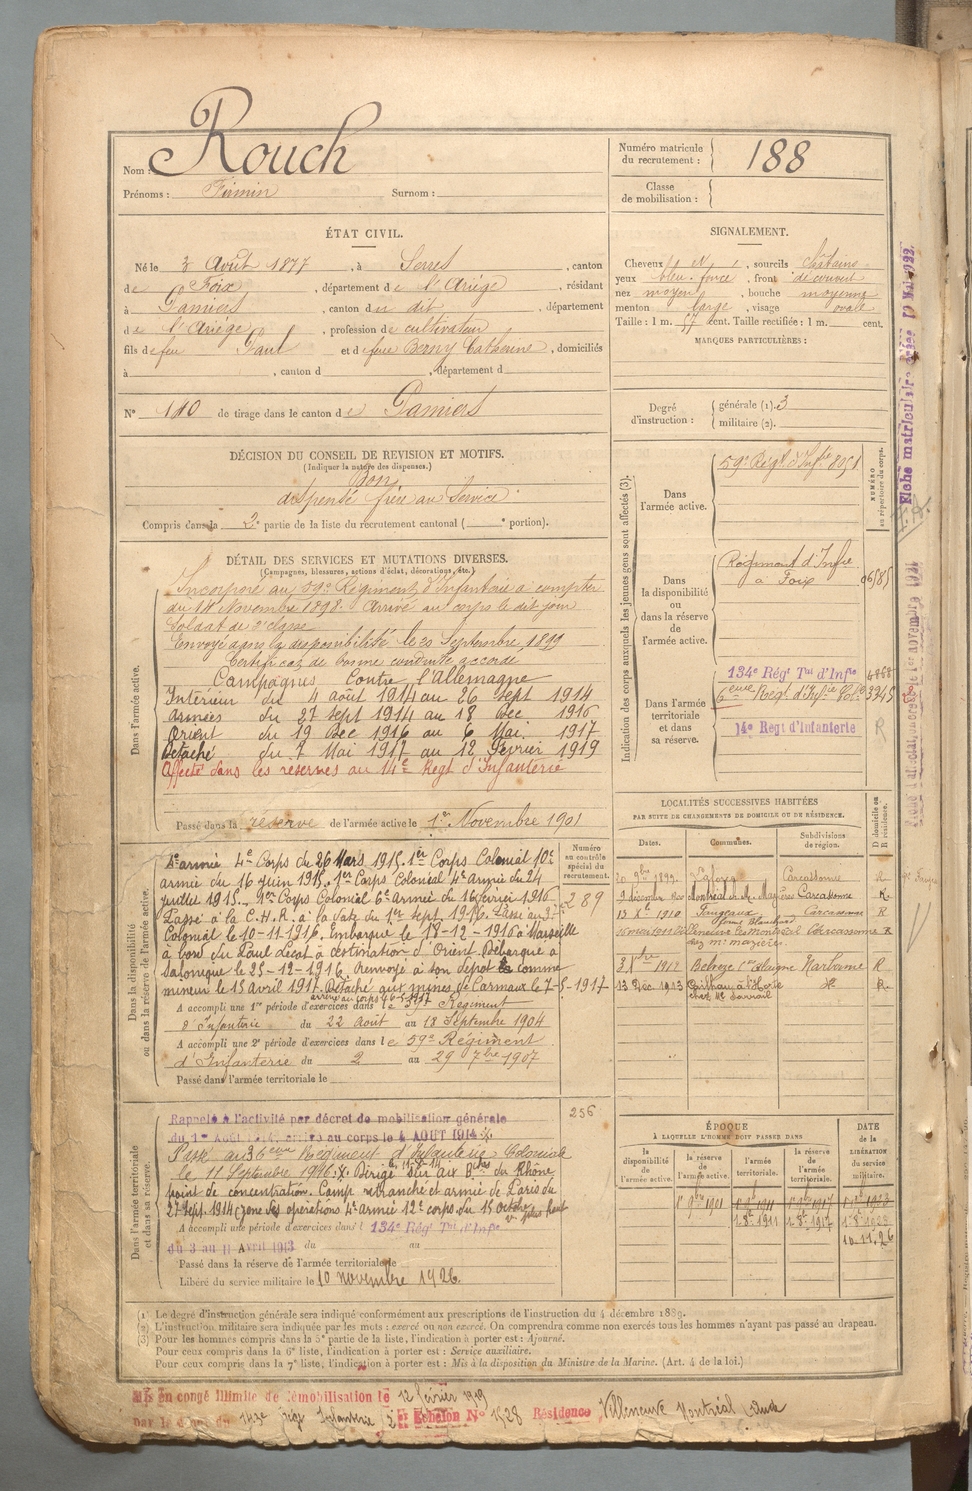 Nom : Rouch
Prénoms : Firmin Surnom :
Numéro matricule du recrutement : 188
Classe de mobilisation :
ÉTAT CIVIL.
Né le 3 Août 1877, à Serres, canton
de Foix, département de l'Ariège, résidant
à Pamiers, canton du dit, département
de l'Ariège, profession de cultivateur
fils de feu Paul et de feue Berny Catherine, domiciliés
à , canton d , département d
N° 110 de tirage dans le canton de Pamiers
SIGNALEMENT.
Cheveux , sourcils châtains
yeux bleu foncé, front découvert
nez moyen, bouche moyenne
menton large, visage ovale
Taille : 1 m. 57 cent. Taille rectifiée : 1 m. cent.
MARQUES PARTICULIÈRES :
Degré d'instruction : générale (1). 3
militaire (2).
DÉCISION DU CONSEIL DE REVISION ET MOTIFS.
(Indiquer la nature des dispenses.)
Bon
dispensé frère au service
Compris dans la 2e partie de la liste du recrutement cantonal ( portion).
DÉTAIL DES SERVICES ET MUTATIONS DIVERSES.
(Campagnes, blessures, actions d'éclat, décorations, etc.)
Dans l'armée active.
Incorporé au 59e Régiment d'Infanterie à compter
du 14 Novembre 1898. Arrivé au corps le dit jour
Soldat de 2e classe
Envoyé dans la disponibilité le 20 Septembre 1899
Certificat de bonne conduite accordé
Campagnes Contre l'Allemagne
Intérieur du 4 août 1914 au 26 sept 1914
Armées du 27 sept 1914 au 18 Dec 1916
Orient du 19 Dec 1916 au 6 Mai 1917
Détaché du 7 Mai 1917 au 12 Février 1919
Affecté dans les réserves au 14e Regt d'Infanterie
Passé dans la réserve de l'armée active le 1er Novembre 1901
Dans la disponibilité ou dans la réserve de l'armée active.
Numéro au contrôle spécial du recrutement.
289
4e armée 4e Corps du 26 Mars 1915. 1er Corps Colonial 10e
armée du 16 juin 1915. 1er Corps Colonial 4e armée du 24
juillet 1915. 1er Corps Colonial 6e Armée du 16 février 1916
Passé à la C.H.R. à la date du 1er sept. 1916. Passé au 3e
Colonial le 10-11-1916. Embarqué le 18-12-1916 à Marseille
à bord du Paul Lecat à destination d'Orient. Débarqué à
Salonique le 25-12-1916. Renvoyé à son dépôt comme
mineur le 15 avril 1917. Détaché aux mines de Carmaux le 7-5-1917
arrivé au corps
A accompli une 1re période d'exercices dans le 59e Régiment
d'Infanterie du 22 août au 18 Septembre 1904
A accompli une 2e période d'exercices dans le 59e Régiment
d'Infanterie du 2 au 29 7bre 1907
Passé dans l'armée territoriale le
Dans l'armée territoriale et dans sa réserve.
256
Rappelé à l'activité par décret de mobilisation générale
du 1er Août 1914, arrivé au corps le 4 AOUT 1914
Passé au 36eme Régiment d'Infanterie Coloniale
le 11 Septembre 1916. Dirigé sur aux Bches du Rhône
point de concentration. Camp retranché et armée de Paris du
27 sept. 1914 zone des opérations 4e armée 12e corps du 15 octobre
A accompli une période d'exercices dans l 134e Rég Tal d'Infie
du 3 au 11 Avril 1913 du au
Passé dans la réserve de l'armée territoriale le
Libéré du service militaire le 10 novembre 1926
Indication des corps auxquels les jeunes gens sont affectés (3).
NUMÉRO au répertoire du corps.
Dans l'armée active.
59e Régt d'Infie 8051
Dans la disponibilité ou dans la réserve de l'armée active.
Régiment d'Infie
à Foix
06585
Dans l'armée territoriale et dans sa réserve.
134e Rég Tal d'Infie
6eme Rég d'Infie Cole
14e Regt d'Infanterie
R
LOCALITÉS SUCCESSIVES HABITÉES
PAR SUITE DE CHANGEMENTS DE DOMICILE OU DE RÉSIDENCE.
Dates. Communes. Subdivisions de région. D domicile ou R résidence.
20 9bre 1899. Carcassonne R
Carcassonne R
13 Xe 1910 Fanjeaux Carcassonne R
Villeneuve les Montréal Carcassonne R
chez Mr
1912 Belvèze Narbonne R
13 Déc. 1913 R
ÉPOQUE
À LAQUELLE L'HOMME DOIT PASSER DANS
la disponibilité de l'armée active.
la réserve de l'armée active.
l'armée territoriale.
la réserve de l'armée territoriale.
DATE de la LIBÉRATION du service militaire.
1er 9bre 1901
1.8bre 1911 1.8bre 1917
10.11.26
(1) Le degré d'instruction générale sera indiqué conformément aux prescriptions de l'instruction du 4 décembre 1889.
(2) L'instruction militaire sera indiquée par les mots : exercé ou non exercé. On comprendra comme non exercés tous les hommes n'ayant pas passé au drapeau.
(3) Pour les hommes compris dans la 5e partie de la liste, l'indication à porter est : Ajourné.
Pour ceux compris dans la 6e liste, l'indication à porter est : Service auxiliaire.
Pour ceux compris dans la 7e liste, l'indication à porter est : Mis à la disposition du Ministre de la Marine. (Art. 4 de la loi.)
Mis en congé illimité de démobilisation le 12 février 1919
par le dépôt du 143e Regt Infanterie Echelon N° 1528 Résidence Villeneuve Montréal Aude